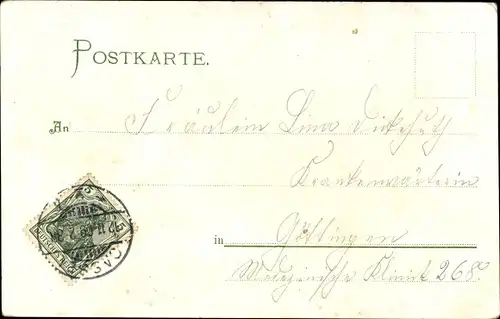 POSTKARTE.
An Fräulein Lina Dickhuth
Krankenwärterin
in Göttingen
Medizinische Klinik 268.
CASS